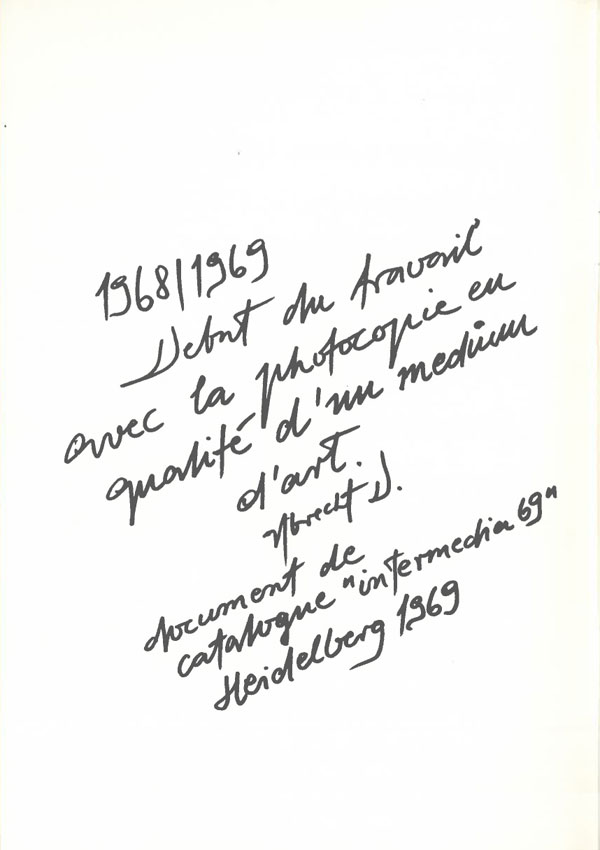 1968/1969
Debut du travail
avec la photocopie en
qualité d'un medium
d'art.
Albrecht D.
document de
catalogue "intermedia 69"
Heidelberg 1969